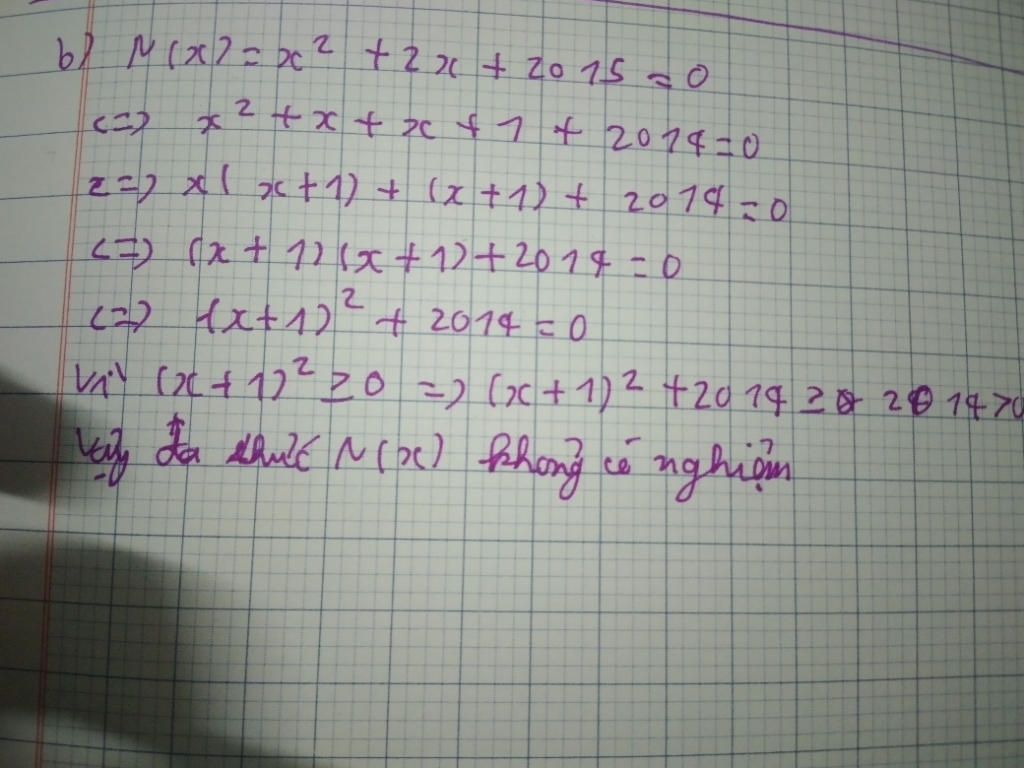 b) N(x) = x² + 2x + 2015 = 0
<=> x² + x + x + 1 + 2014 = 0
<=> x(x+1) + (x+1) + 2014 = 0
<=> (x+1)(x+1) + 2014 = 0
<=> (x+1)² + 2014 = 0
Vì (x+1)² ≥ 0 => (x+1)² + 2014 ≥ 2014 > 0
Vậy đa thức N(x) không có nghiệm